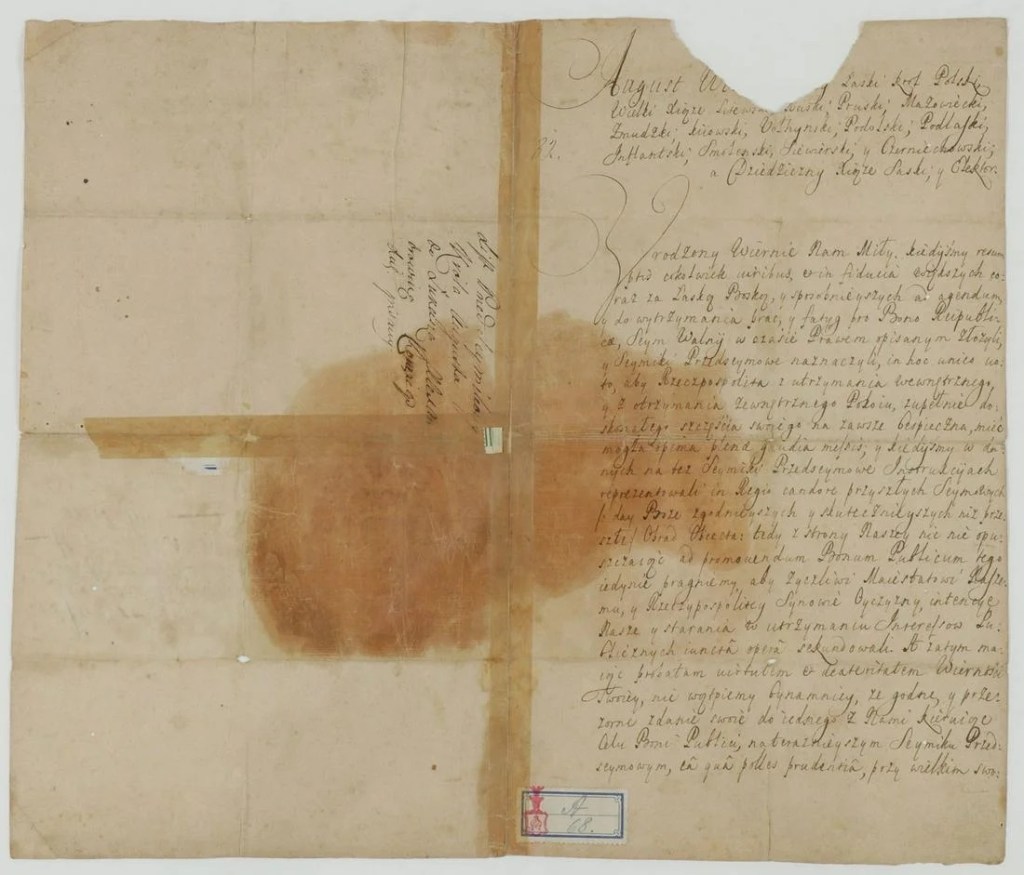 August W Łaski Krol Polski,
Wielki Xiąże Litewski Ruski, Pruski, Mazowiecki,
Zmudzki, Kiiowski, Wołhynski, Podolski, Podlaski,
Inflantski, Smolenski, Siewierski, y Czerniechowski;
a Dziedziczny Xiąże Saski, y Elektor.
82.
Vrodzony Wiernie Nam Miły. Kiedyśmy resum
ptis cokolwiek viribus, et in fiducia większych co-
raz za Łaską Boską, y sposobnieyszych ad agendum,
y do wytrzymania prac, y fatyg pro Bono Reipubli-
cæ, Seym Walny w czasie Prawem opisanym złożyli,
y Seymiki Przedseymowe naznaczyli, in hoc unico vo-
to, aby Rzeczpospolita z utrzymania wewnętrznego,
y z otrzymania zewnętrznego Pokoiu, zupełnie do-
skonałego szczęścia swoiego na zawsze bespieczna, mieć
mogła opima plena gaudia messis, y kiedyśmy w da-
nych na też Seymiki Przedseymowe Instrukcyiach
reprezentowali in Regio candore przyszłych Seymowych
/: day Boże zgodnieyszych y skutecznieyszych niż prze-
szłe/ Obrad Obiecta: tedy z strony Naszey nic nie opu-
szczaiąc ad promovendum Bonum Publicum tego
iedynie pragniemy, aby życzliwi Maiestatowi Nasze-
mu, y Rzeczypospolitey Synowie Oyczyzny, intencye
Nasze y starania w utrzymaniu Interessow Pu-
blicznych iunctâ operâ sekundowali. A zatym ma-
iąc probatam virtutem et dexteritatem Wierności
Twoiey, nie wątpiemy bynamniey, że godne, y prze-
zorne zdanie swoie do iednego z Nami kieruiąc
Celu Boni Publici, na teraznieyszym Seymiku Przed-
seymowym, eâ quâ polles prudentiâ, przy wielkim swo-
List Przed Seymikowy
Krola Augusta
do Łukasza
Konarzego
pisany
A
68.